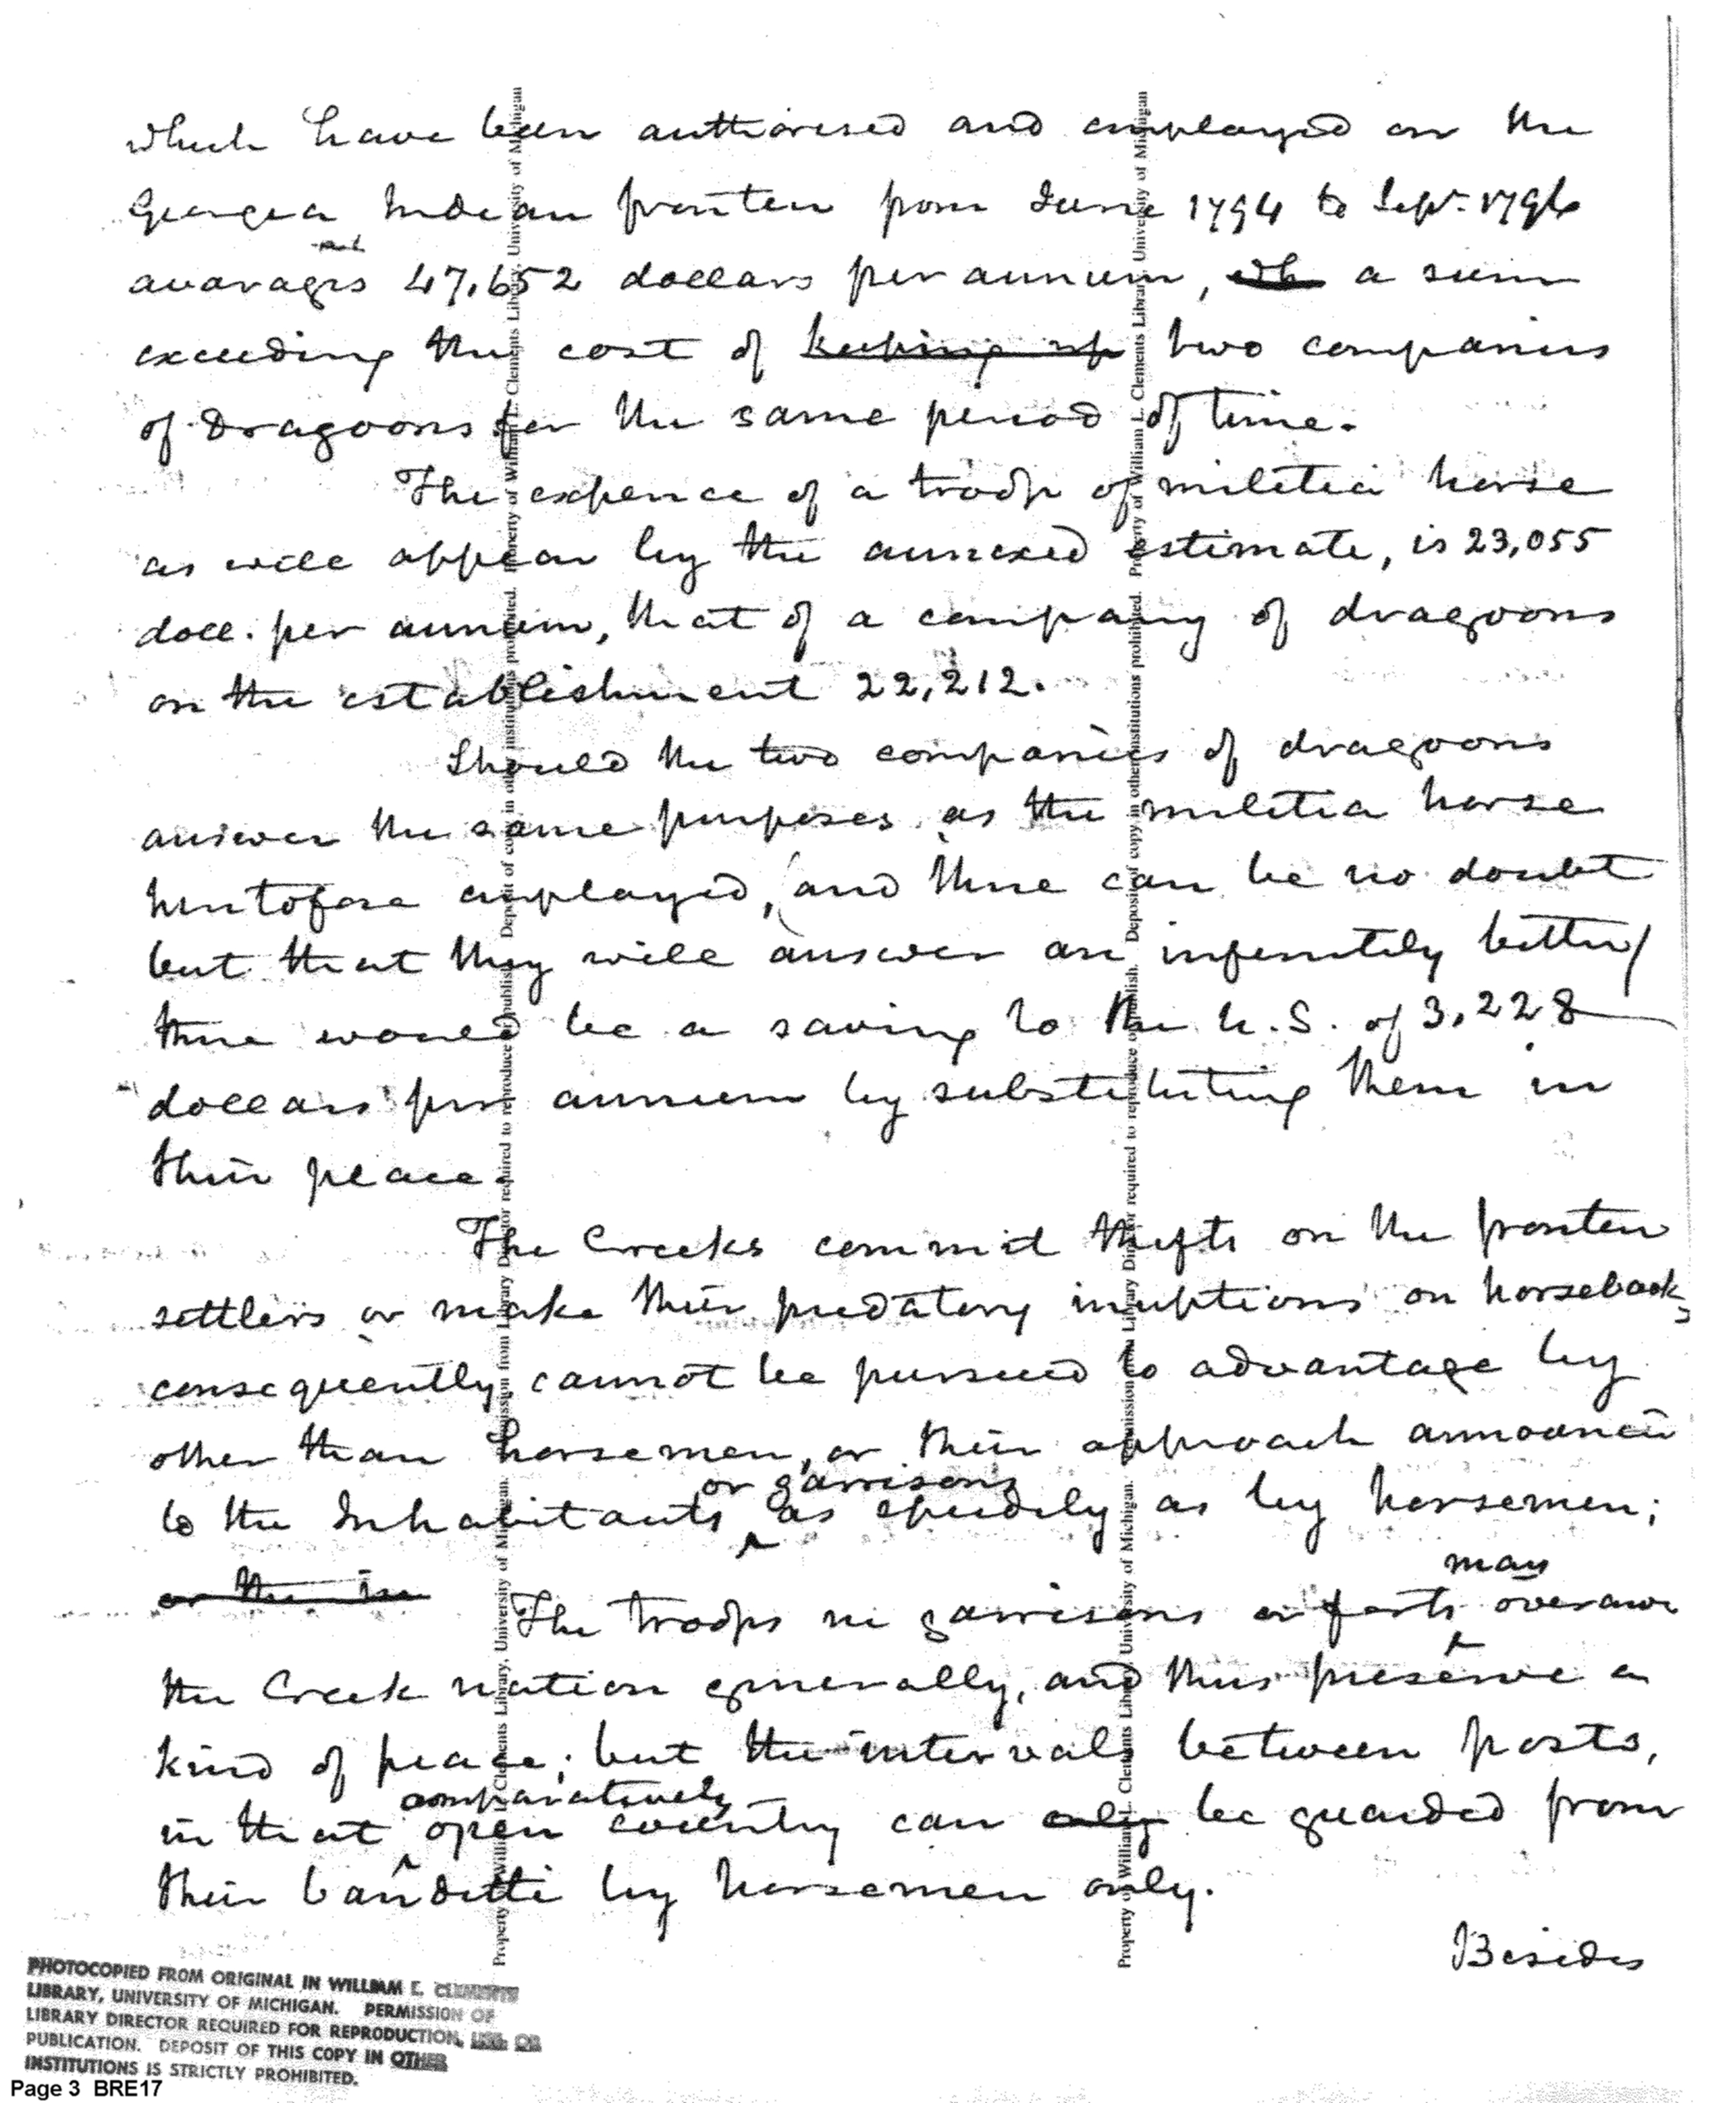 which have been authorised and employed on the
Georgia Indian frontier from June 1794 to Sepr. 1796
avarages 47,652 dollars per annum, wh a sum
exceeding the cost of keeping up two companies
of Dragoons for the same period of time.
The expence of a troop of militia horse
as will appear by the annexed estimate, is 23,055
doll. per annum, that of a company of dragoons
on the establishment 22,212.
Should the two companies of dragoons
answer the same purposes as the militia horse
heretofore employed, (and there can be no doubt
but that they will answer an infinitely better)
there would be a saving to the U.S. of 3,228
dollars per annum by substituting them in
their place.
The Creeks commit thefts on the frontier
settlers or make their predatory irruptions on horseback,
consequently cannot be pursued to advantage by
other than horsemen, or their approach announced
or garrisons
to the Inhabitants ^ as speedily as by horsemen;
may
or the in The troops in garrisons or forts ^ overawe
the Creek nation generally, and thus preserve a
kind of peace; but the intervals between posts,
comparatively
in that ^ open country can only be guarded from
their banditti by horsemen only.
Besides
PHOTOCOPIED FROM ORIGINAL IN WILLIAM L. CLEMENTS
LIBRARY, UNIVERSITY OF MICHIGAN. PERMISSION OF
LIBRARY DIRECTOR REQUIRED FOR REPRODUCTION, USE OR
PUBLICATION. DEPOSIT OF THIS COPY IN OTHER
INSTITUTIONS IS STRICTLY PROHIBITED.
Page 3 BRE17
Property of William L. Clements Library, University of Michigan. Permission from Library Director required to reproduce or publish. Deposit of copy in other institutions prohibited. Property of William L. Clements Library, University of Michigan
Property of William L. Clements Library, University of Michigan. Permission from Library Director required to reproduce or publish. Deposit of copy in other institutions prohibited. Property of William L. Clements Library, University of Michigan